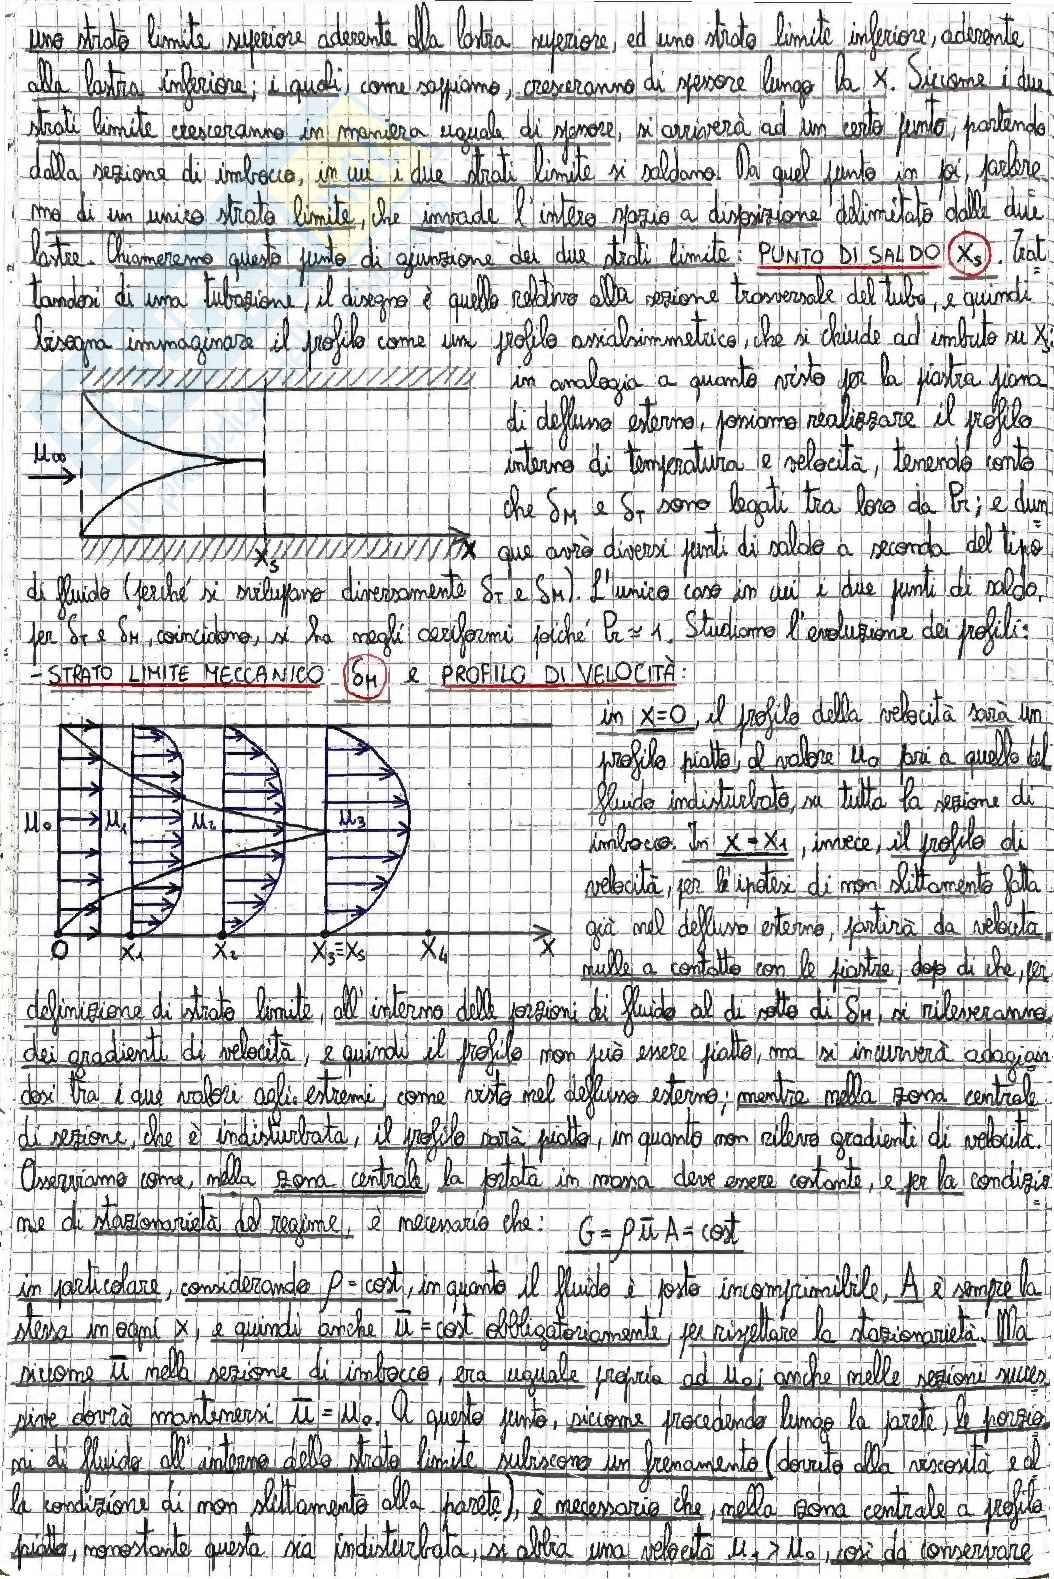 uno strato limite superiore aderente alla lastra superiore, ed uno strato limite inferiore, aderente
alla lastra inferiore; i quali, come sappiamo, cresceranno di spessore lungo la x. Siccome i due
strati limite cresceranno in maniera uguale di spessore, si arriverà ad un certo punto, partendo
dalla sezione di imbocco, in cui i due strati limite si saldano. Da quel punto in poi, parlere
mo di un unico strato limite, che invade l'intero spazio a disposizione delimitato dalle due
lastre. Chiameremo questo punto di giunzione dei due strati limite: PUNTO DI SALDO Xs. Trat
tandosi di una tubazione, il disegno è quello relativo alla sezione trasversale del tubo, e quindi
bisogna immaginare il profilo come un profilo assialsimmetrico, che si chiude ad imbuto su Xs.
in analogia a quanto visto per la piastra piana
di deflusso esterno, possiamo realizzare il profilo
interno di temperatura e velocità, tenendo conto
che δM e δT sono legati tra loro da Pr; e dun
que avrò diversi punti di saldo a seconda del tipo
u∞
Xs
x
di fluido (perché si sviluppano diversamente δT e δM). L'unico caso in cui i due punti di saldo,
per δT e δM, coincidono, si ha negli aeriformi poiché Pr ≃ 1. Studiamo l'evoluzione dei profili:
- STRATO LIMITE MECCANICO δM e PROFILO DI VELOCITÀ:
in x=0, il profilo della velocità sarà un
profilo piatto, al valore u0 pari a quello del
fluido indisturbato, su tutta la sezione di
imbocco. In x = x1, invece, il profilo di
velocità, per le ipotesi di non slittamento fatta
già nel deflusso esterno, partirà da velocità
nulle a contatto con le piastre, dopo di che, per
u0 u1 u2 u3
0 x1 x2 x3≡xs x4 x
definizione di strato limite, all'interno delle porzioni di fluido al di sotto di δM, si rileveranno
dei gradienti di velocità, e quindi il profilo non può essere piatto, ma si incurverà adagian
dosi tra i due valori agli estremi, come visto nel deflusso esterno; mentre nella zona centrale
di sezione, che è indisturbata, il profilo sarà piatto, in quanto non rilevo gradienti di velocità.
Osserviamo come, nella zona centrale, la portata in massa deve essere costante, e per la condizio
ne di stazionarietà del regime, è necessario che: G = ρ ū A = cost
in particolare, considerando ρ = cost, in quanto il fluido è posto incomprimibile, A è sempre la
stessa in ogni x, e quindi anche ū = cost obbligatoriamente, per rispettare la stazionarietà. Ma
siccome ū nella sezione di imbocco, era uguale proprio ad u0; anche nelle sezioni succes
sive dovrà mantenersi ū = u0. A questo punto, siccome procedendo lungo la parete, le porzio
ni di fluido all'interno dello strato limite subiscono un frenamento (dovuto alla viscosità e al
la condizione di non slittamento alla parete), è necessario che, nella zona centrale a profilo
piatto, nonostante questa sia indisturbata, si abbia una velocità u1 > u0, così da conservare